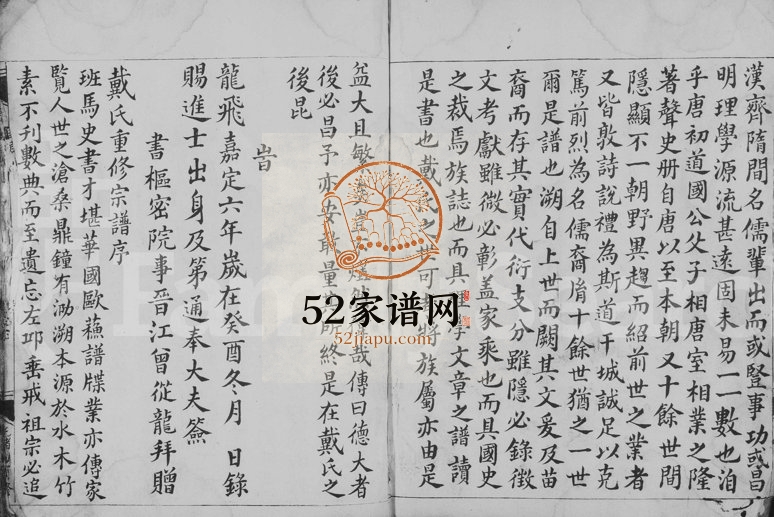 漢齊隋間名儒輩出而或豎事功或昌
明理學源流甚遠固未易一一數也洎
乎唐初道國公父子相唐室相業之隆
著聲史册自唐以至本朝又十餘世間
隱顯不一朝野異趨而紹前世之業者
又皆敦詩說禮為斯道干城誠足以克
篤前烈為名儒裔胄十餘世猶之一世
爾是譜也溯自上世而闕其文爰及苗
裔而存其實代衍支分雖隱必錄徵
文考獻雖微必彰盖家乘也而具國史
之裁焉族誌也而具 文章之譜讀
是書也戴 之 可 將族屬亦由是
益大且敏 豈 哉傳曰德大者
後必昌予亦安敢量 所終是在戴氏之
後昆
旹
龍飛嘉定六年歲在癸酉冬月 日錄
賜進士出身及第通奉大夫簽
書樞密院事晉江曾從龍拜贈
戴氏重修宗譜序
班馬史書才堪華國歐蘓譜牒業亦傳家
覧人世之滄桑鼎鐘有泐溯本源於水木竹
素不刋數典而至遺忘左邱垂戒祖宗必追
52家谱网
52jiapu.com